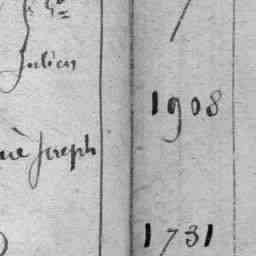 Julien
1908
Joseph
1731